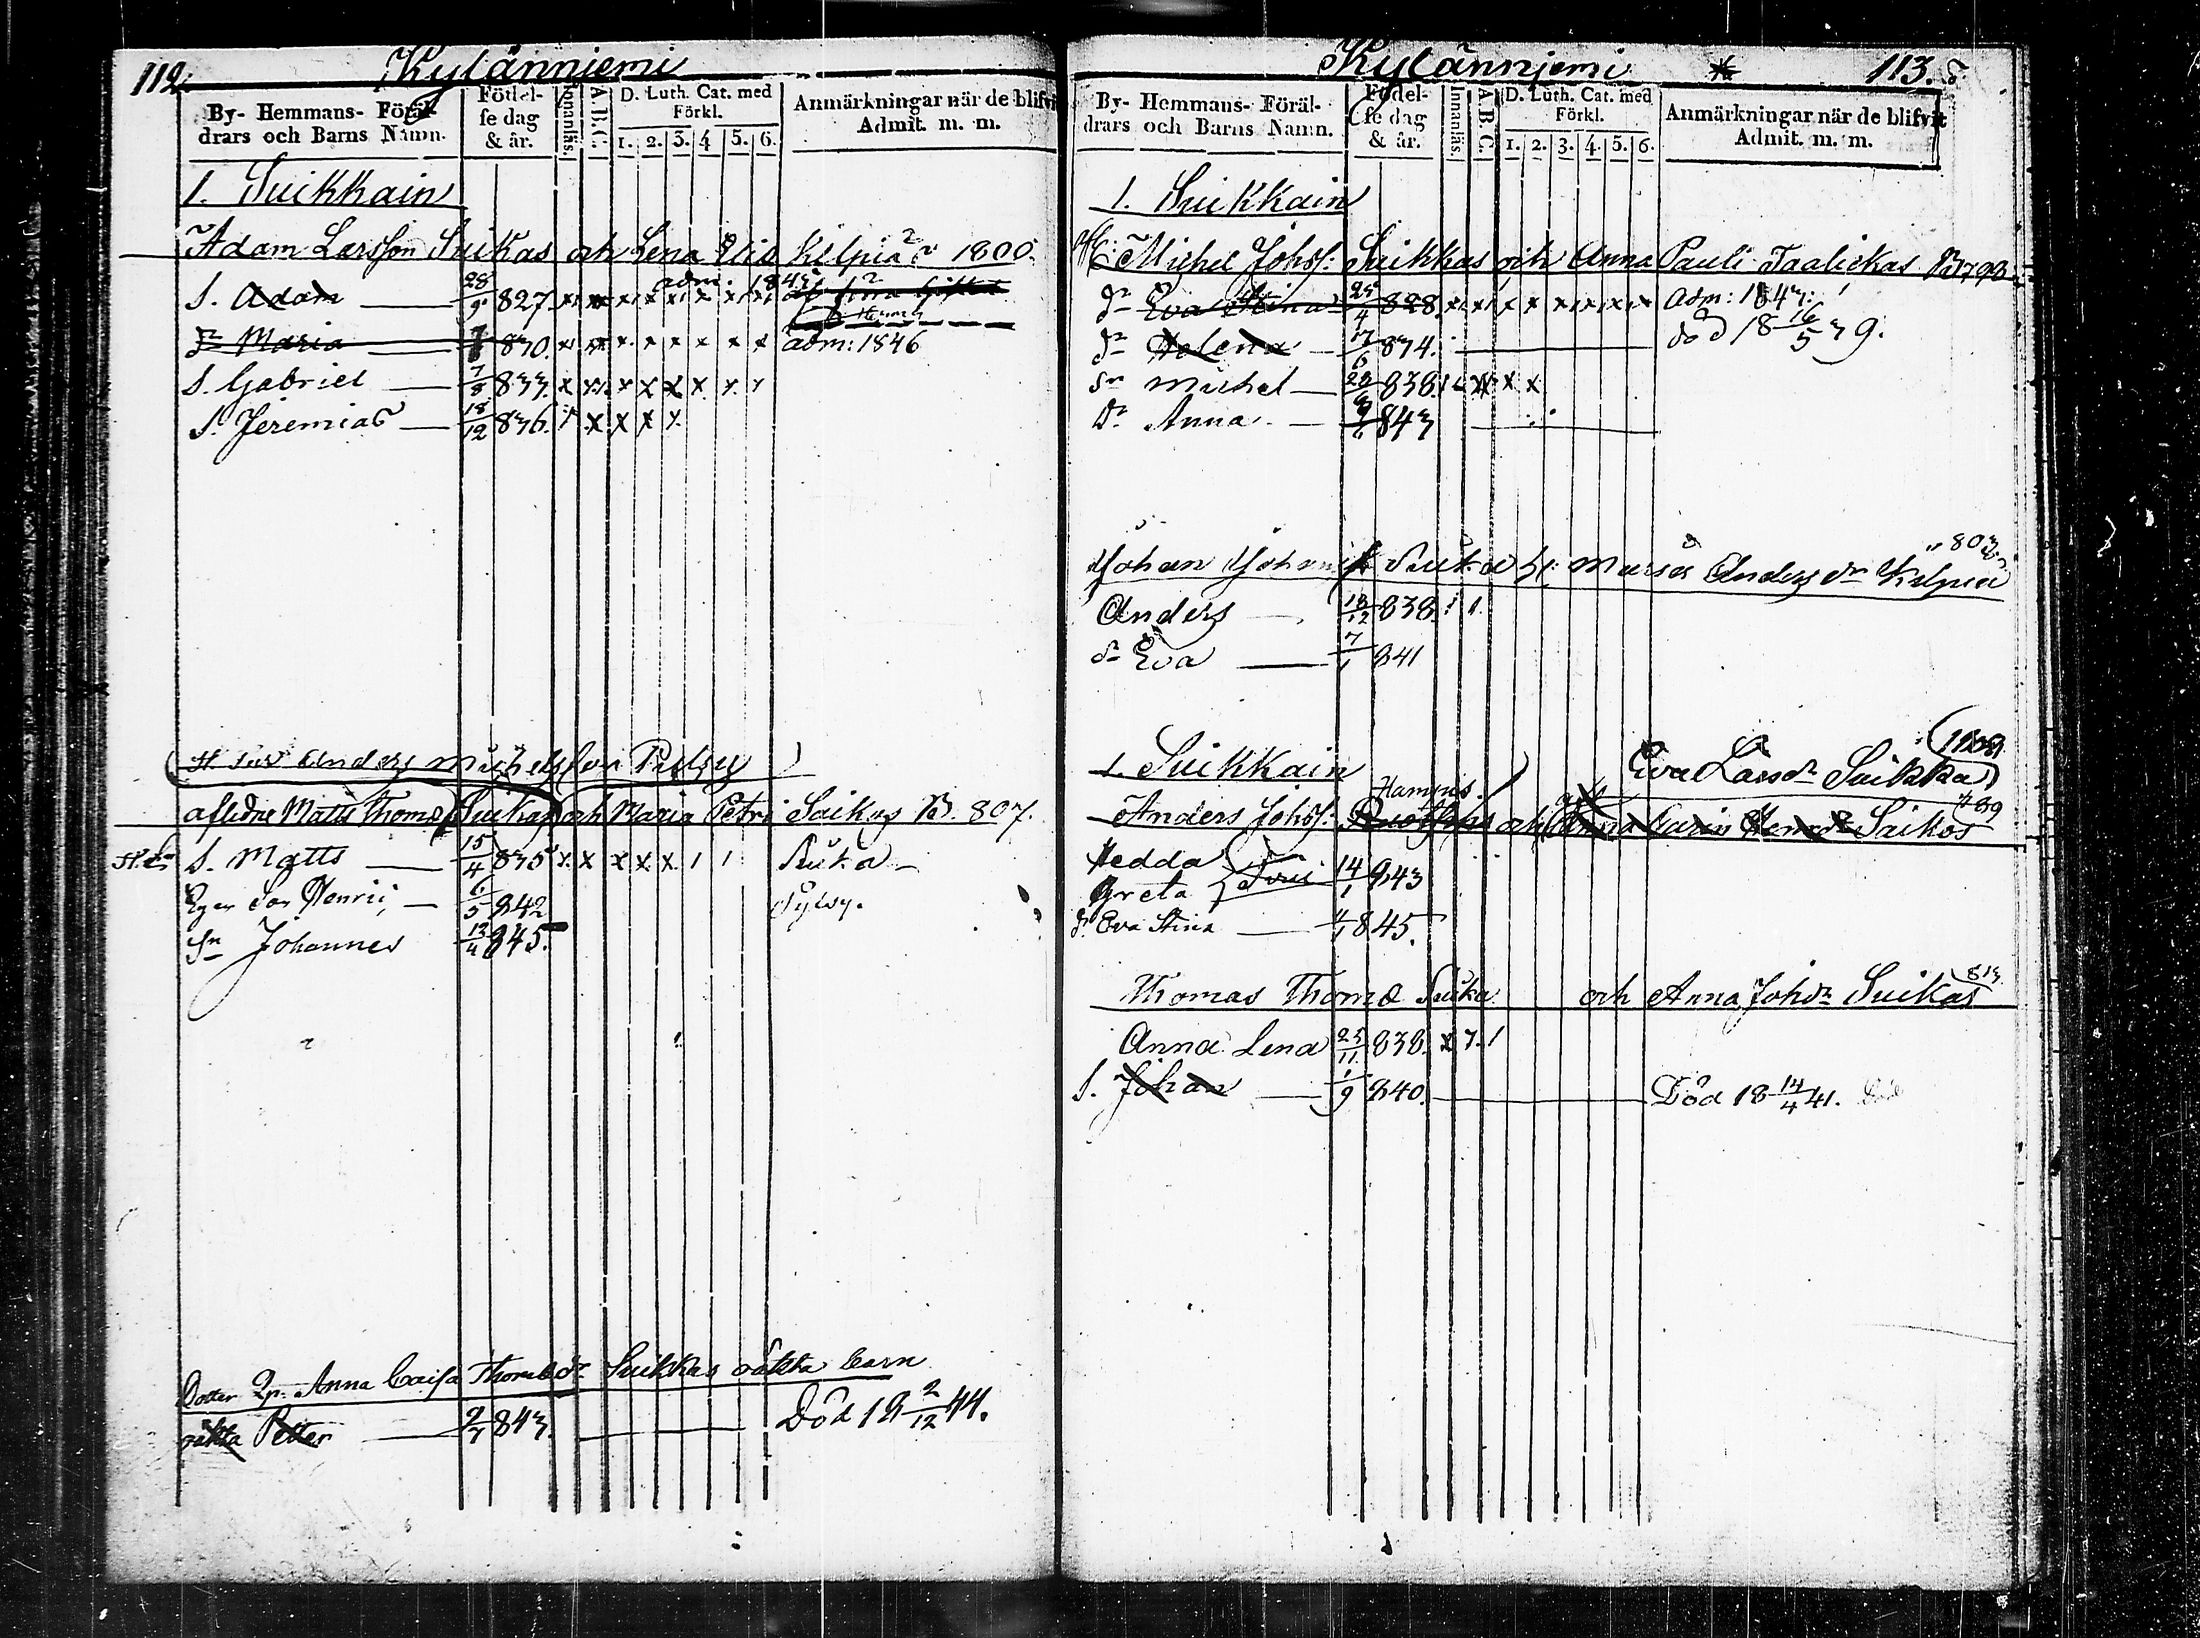 112.
Kylänniemi
By- Hemmans- Föräl-
drars och Barns Namn.
Födel-
se dag
& år.
Innanläs.
A.B.C.
D. Luth. Cat. med
Förkl.
1. 2. 3. 4 5. 6.
Anmärkningar när de blifvit
Admit. m. m.
1. Suikkain
Adam Larsson Suikas och Lena Elis Kilpia 1800.
S. Adam 28/9 827. adm. 1845
Dr Maria 830. adm: 1846
S. Gabriel 7/8 833.
S. Jeremias 18/12 836.
Anders Michelsson Pylsy
afledne Matts Thomæ Suikas och Maria Petri Saikus B. 807.
S. Matts 15/4 835 Suika
Egen Son Henric 6/5 842 Pylsy.
Sn Johannes 13/4 845.
Dotter Qp. Anna Caisa Thomædr Suikkas oäkta barn
oäkta Petter 2/7 843. Död 18 2/12 44.
113.
Kylänniemi
By- Hemmans- Föräl-
drars och Barns Namn.
Födel-
se dag
& år.
Innanläs.
A.B.C.
D. Luth. Cat. med
Förkl.
1. 2. 3. 4. 5. 6.
Anmärkningar när de blifvit
Admit. m. m.
1. Suikkain
Michel Johss: Suikkas och Anna Pauli Taalickas
Dr Eva Stina 25/4 828. Adm: 1843:
Dr Helena 17/6 834. död 18 16/5 39.
Sn Michel 838.
Dr Anna 843
803.
Johan Suika h: Maria Andersdr Kilpia
Anders 18/12 838.
dr Eva 7/1 841
1. Suikkain
Eva Larsdr Suikka
Hampus.
Anders Johss: och Anna Carin Henrdr Saikos 789
Hedda
Greta 14/1 843
dr Eva Stina 4/1 845.
Thomas Thomæ Suika och Anna Johdr Suikas 813.
Anna Lena 25/11 838.
S. Johan 1/9 840. Död 18 14/4 41.